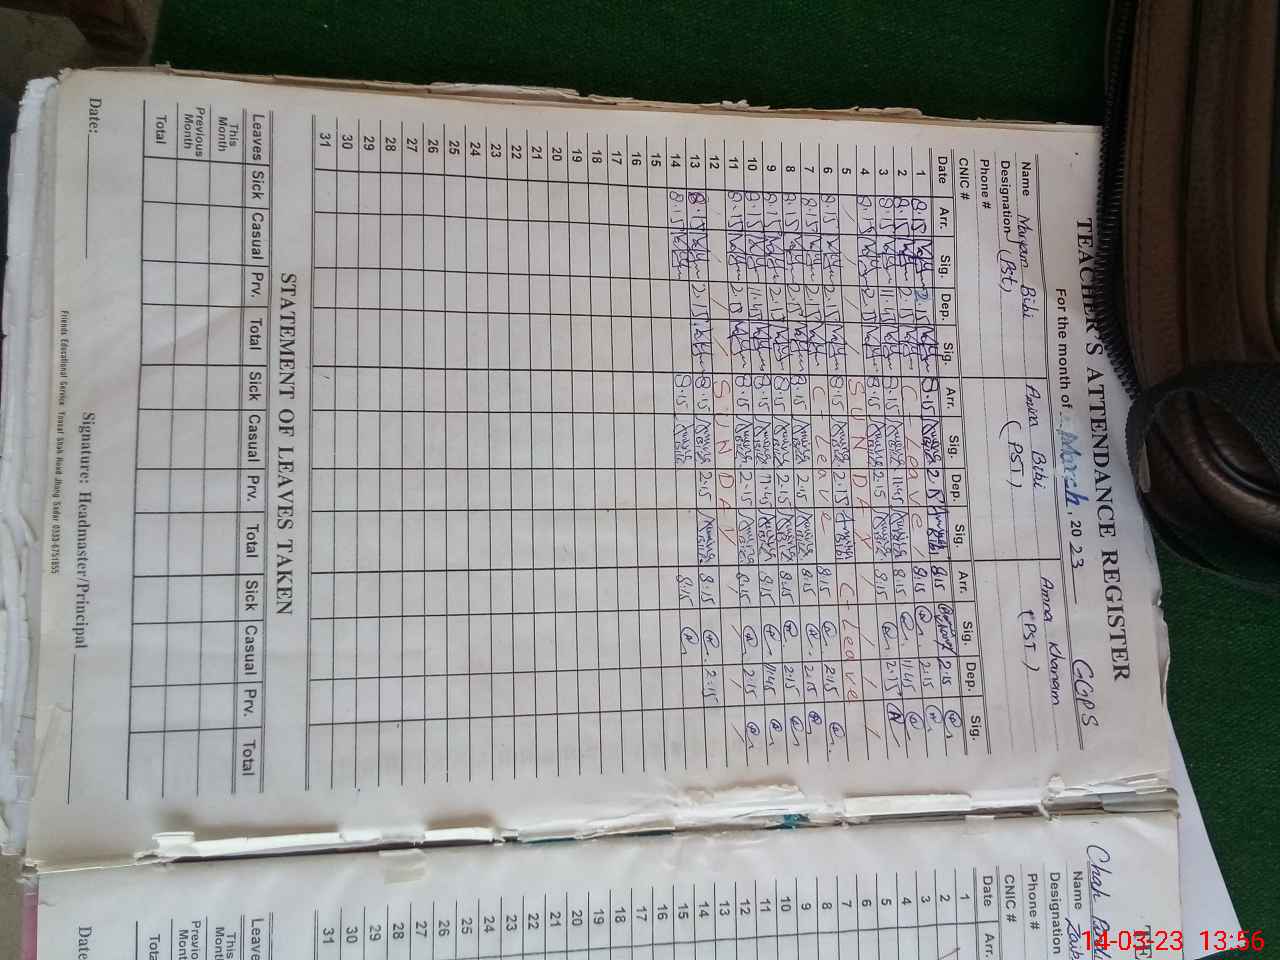 TEACHER'S ATTENDANCE REGISTER
GGPS
For the month of March, 20 23
Name Maryam Bibi Amina Bibi Amna Khanam
Designation (PST) (PST) (PST)
Phone #
CNIC #
Date Arr. Sig. Dep. Sig. Arr. Sig. Dep. Sig. Arr. Sig. Dep. Sig.
1 8.15 2.15 8.15 2.15 8.15 2.15
2 8.15 2.15 C Leave 8.15 2.15
3 8.15 11.45 8.15 11.45 8.15 11.45
4 8.15 2.15 8.15 2.15 8.15 2.15
5 SUNDAY
6 8.15 2.15 8.15 2.15 C-Leave
7 8.15 2.15 C-Leave 8.15 2.15
8 8.15 2.15 8.15 2.15 8.15 2.15
9 8.15 2.15 8.15 2.15 8.15 2.15
10 8.15 11.45 8.15 11.45 8.15 11.45
11 8.15 2.15 8.15 2.15 8.15 2.15
12 SUNDAY
13 8.15 2.15 8.15 2.15 8.15 2.15
14 8.15 8.15 8.15
15
16
17
18
19
20
21
22
23
24
25
26
27
28
29
30
31
STATEMENT OF LEAVES TAKEN
Leaves Sick Casual Prv. Total Sick Casual Prv. Total Sick Casual Prv. Total
This Month
Previous Month
Total
Date: Signature: Headmaster/Principal
Friends Educational Service Yousaf Shah Road Jhang Sadar 0333-6751855
TE
Chah
Name
Designation
Phone #
CNIC #
Date Arr.
1
2
3
4
5
6
7
8
9
10
11
12
13
14
15
16
17
18
19
20
21
22
23
24
25
26
27
28
29
30
31
Leave
This Mont
Previo Mont
Tota
Date
14-03-23 13:56